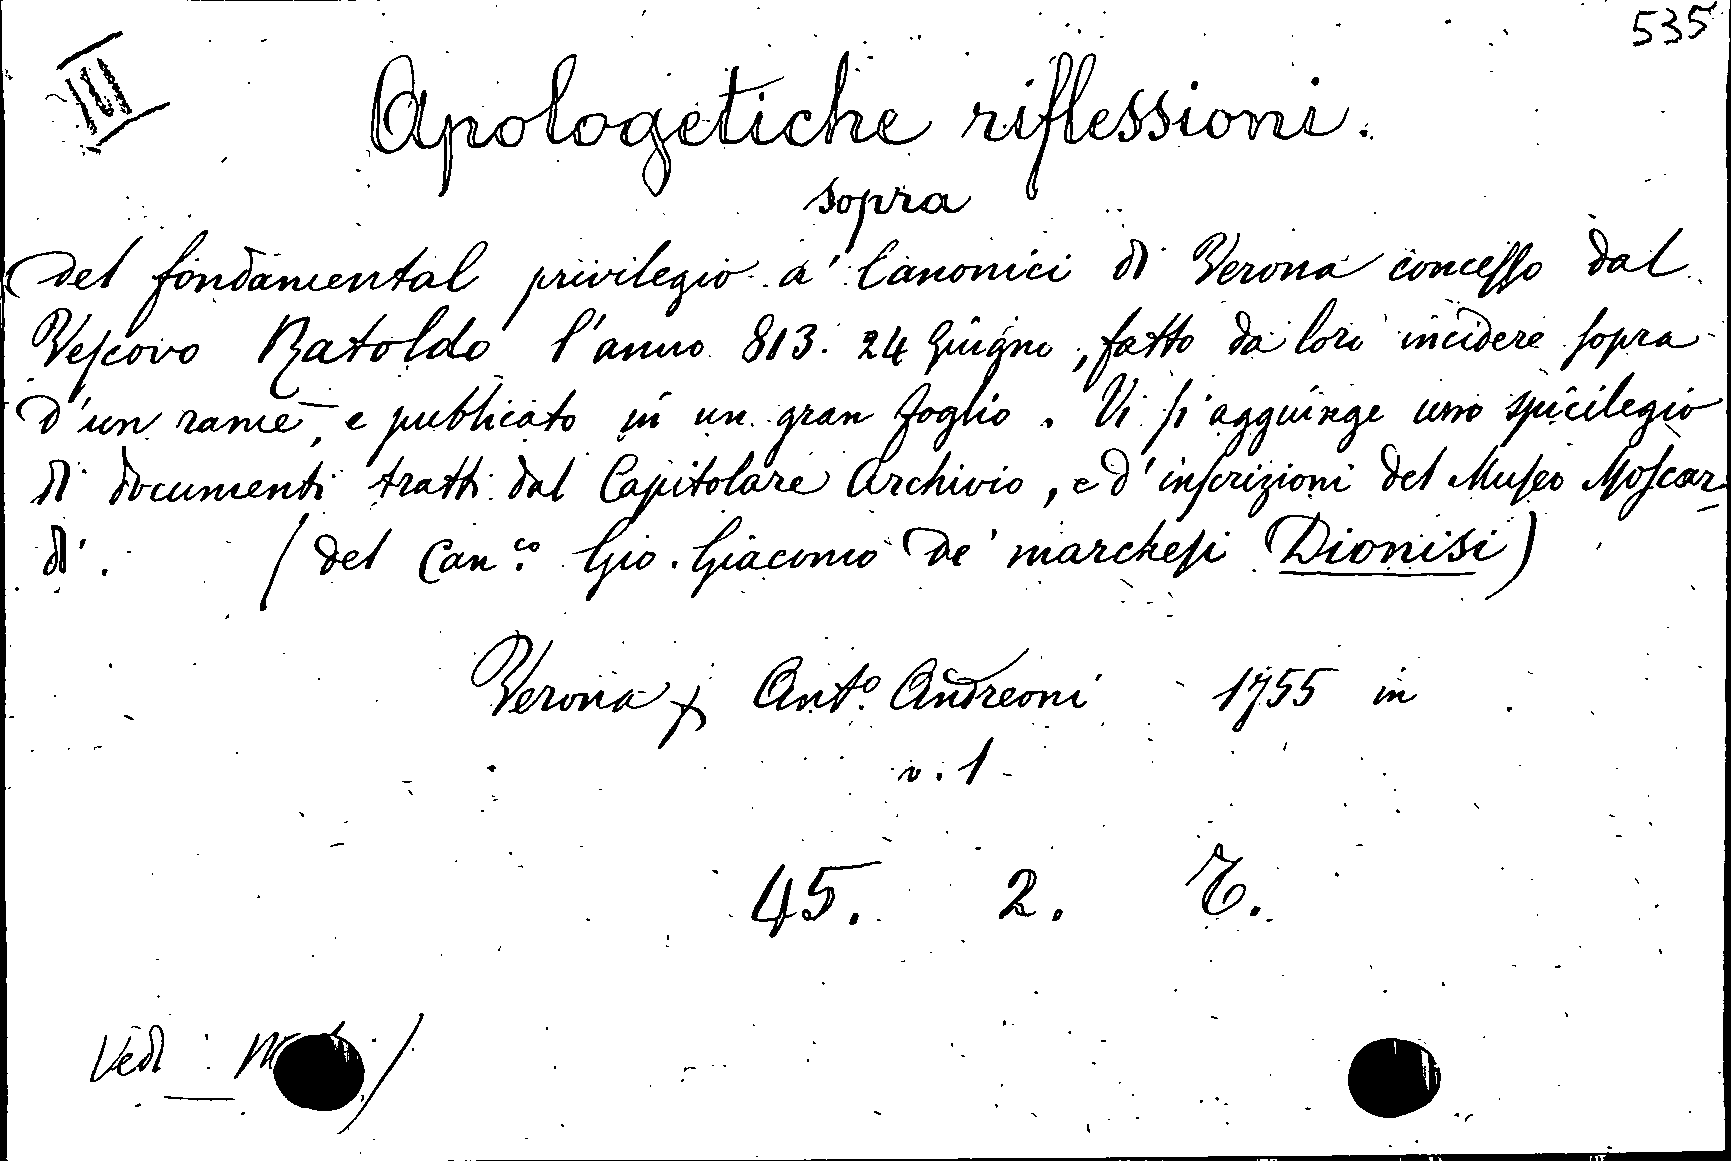 535
III
Apologetiche riflessioni.
sopra
del fondamental privilegio a' Canonici di Verona concesso dal
Vescovo Ratoldo l'anno 813. 24 Giugno, fatto da loro incidere sopra
d'un rame, e publicato in un gran foglio. Vi si aggiunge uno spicilegio
di documenti tratti dal Capitolare Archivio, e d'inscrizioni del Museo Moscar-
di. (del Can.co Gio. Giacomo de' marchesi Dionisi)
Verona Ant.o Andreoni 1755 in
v. 1
45. 2.
Vedi: